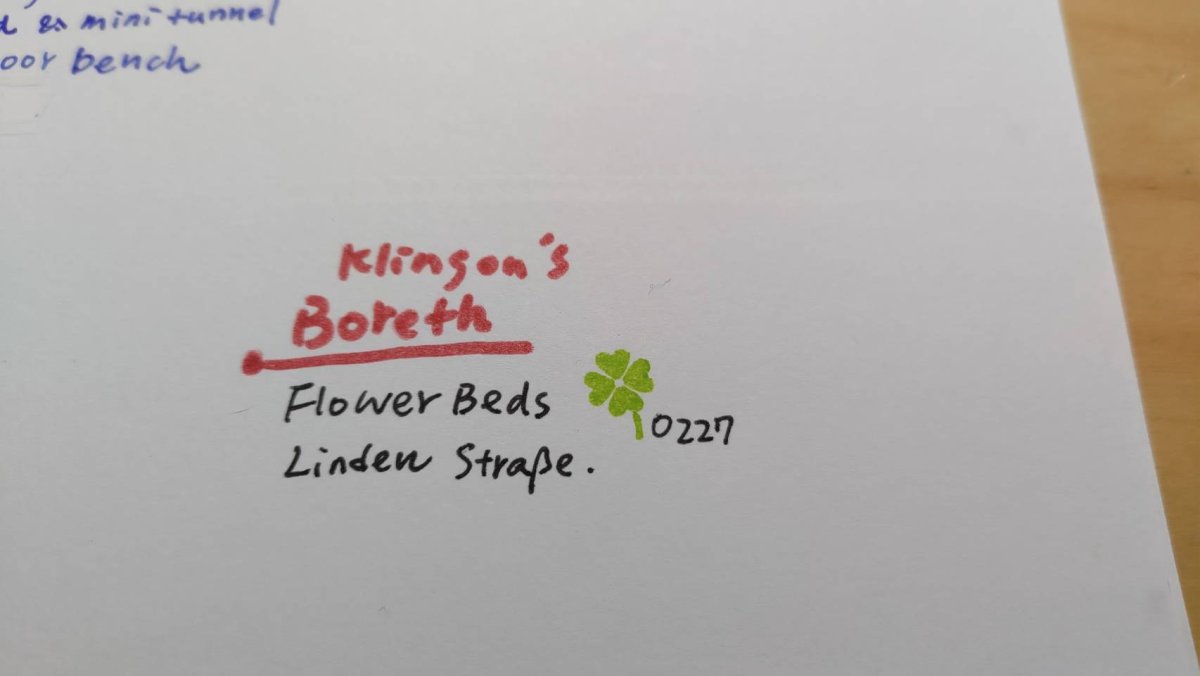 & mini tunnel
bench
Klingon's
Boreth
Flower Beds
Linden Straße.
0227